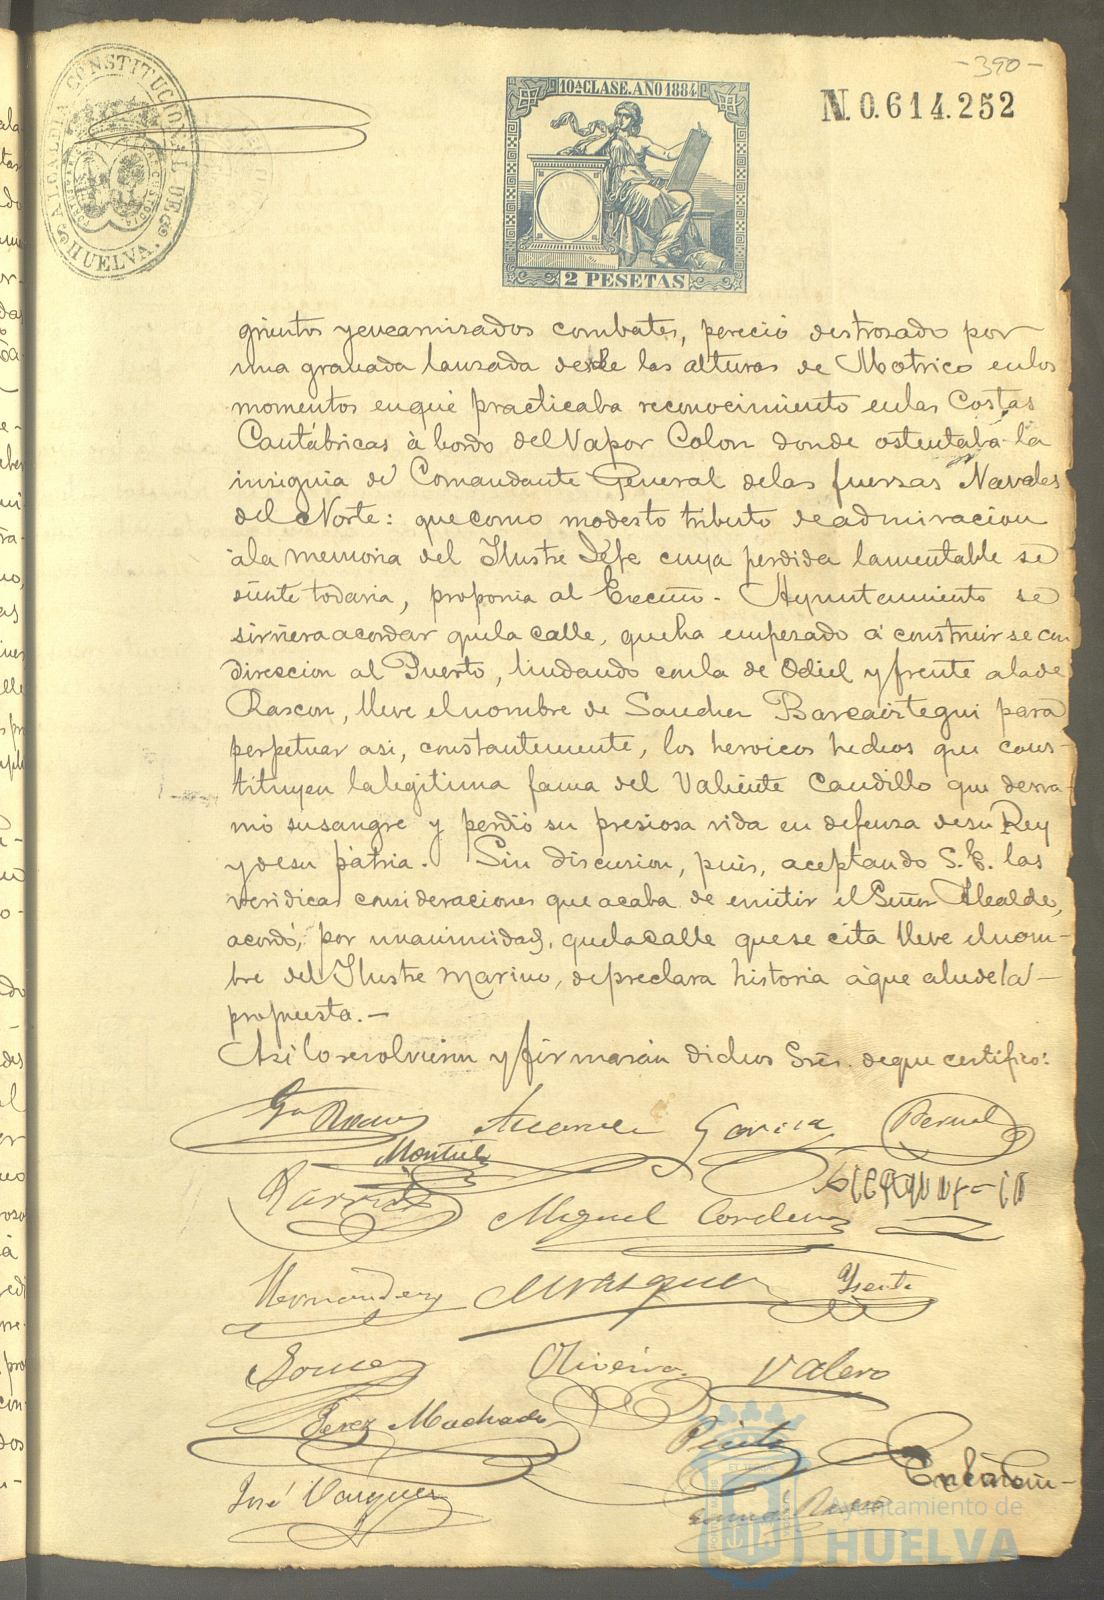 -390-
ALCALDIA CONSTITUCIONAL DE HUELVA.
10ª CLASE. AÑO 1884
N.0.614.252
2 PESETAS
grientos y encarnizados combates, pereció destrosado por
una granada lanzada desde las alturas de Motrico en los
momentos en que practicaba reconocimiento en las Costas
Cantábricas à bordo del Vapor Colon donde ostentaba la
insignia de Comandante General de las fuersas Navales
del Norte: que como modesto tributo de admiracion
à la memoria del Ilustre Jefe cuya perdida lamentable se
siente todavia, proponia al Excmo. Ayuntamiento se
sirviera acordar que la calle, que ha empesado á construirse con
direccion al Puerto, lindando con la de Odiel y frente a la de
Rascon, lleve el nombre de Sanchez Barcaiztegui para
perpetuar asi, constantemente, los heroicos hechos que cons-
tituyen la legitima fama del Valiente Caudillo que derra-
mó su sangre y perdió su presiosa vida en defenza de su Rey
y de su pátria. Sin discusion, pues, aceptando S.E. las
veridicas consideraciones que acaba de emitir el Señor Alcalde,
acordó, por unanimidad, que la calle que se cita lleve el nom-
bre del Ilustre Marino, de preclara historia á que alude la
propuesta.-
Asi lo resolvieron y firmarán dichos Sres. de que certifico:
García Bernal
Montiel
Miguel Cordero
Hernandez Vasquez
Gomez Oliveira Valero
Perez Machado Pinto
José Vázquez
Ayuntamiento de
HUELVA